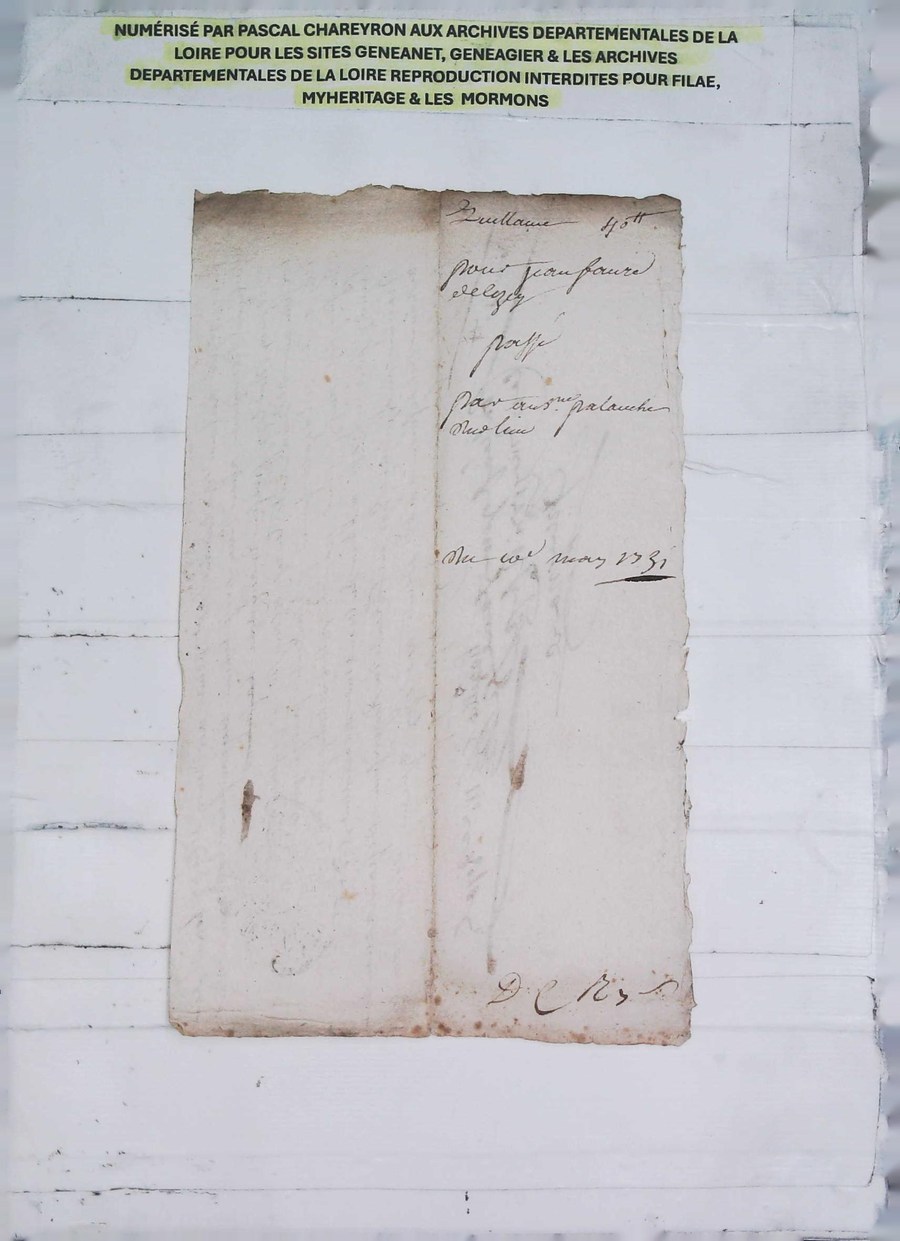 NUMÉRISÉ PAR PASCAL CHAREYRON AUX ARCHIVES DEPARTEMENTALES DE LA
LOIRE POUR LES SITES GENEANET, GENEAGIER & LES ARCHIVES
DEPARTEMENTALES DE LA LOIRE REPRODUCTION INTERDITES POUR FILAE,
MYHERITAGE & LES MORMONS
40tt
pour jean faure
passé
par palanche
dud lieu
du may 1731